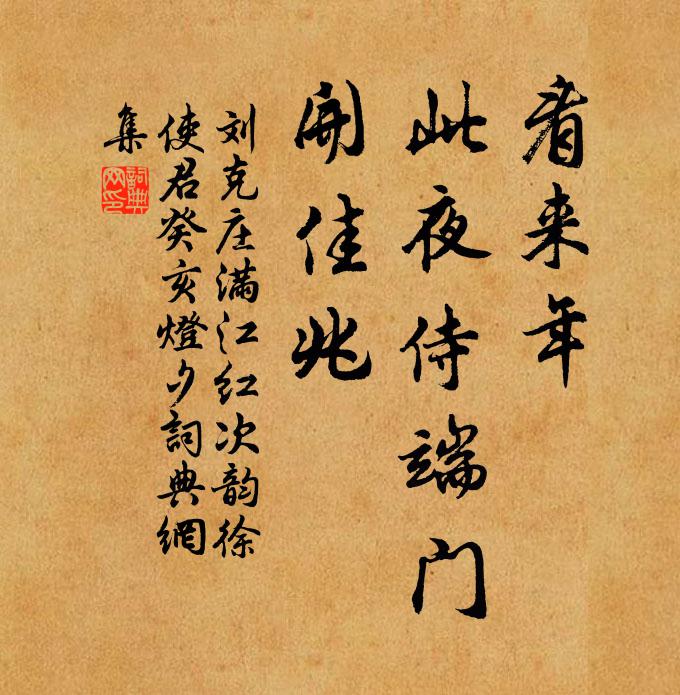 看来年
此夜侍端门
開佳兆
刘克庄满江红次韵徐
使君癸亥燈夕詞典網
集
詞典网印